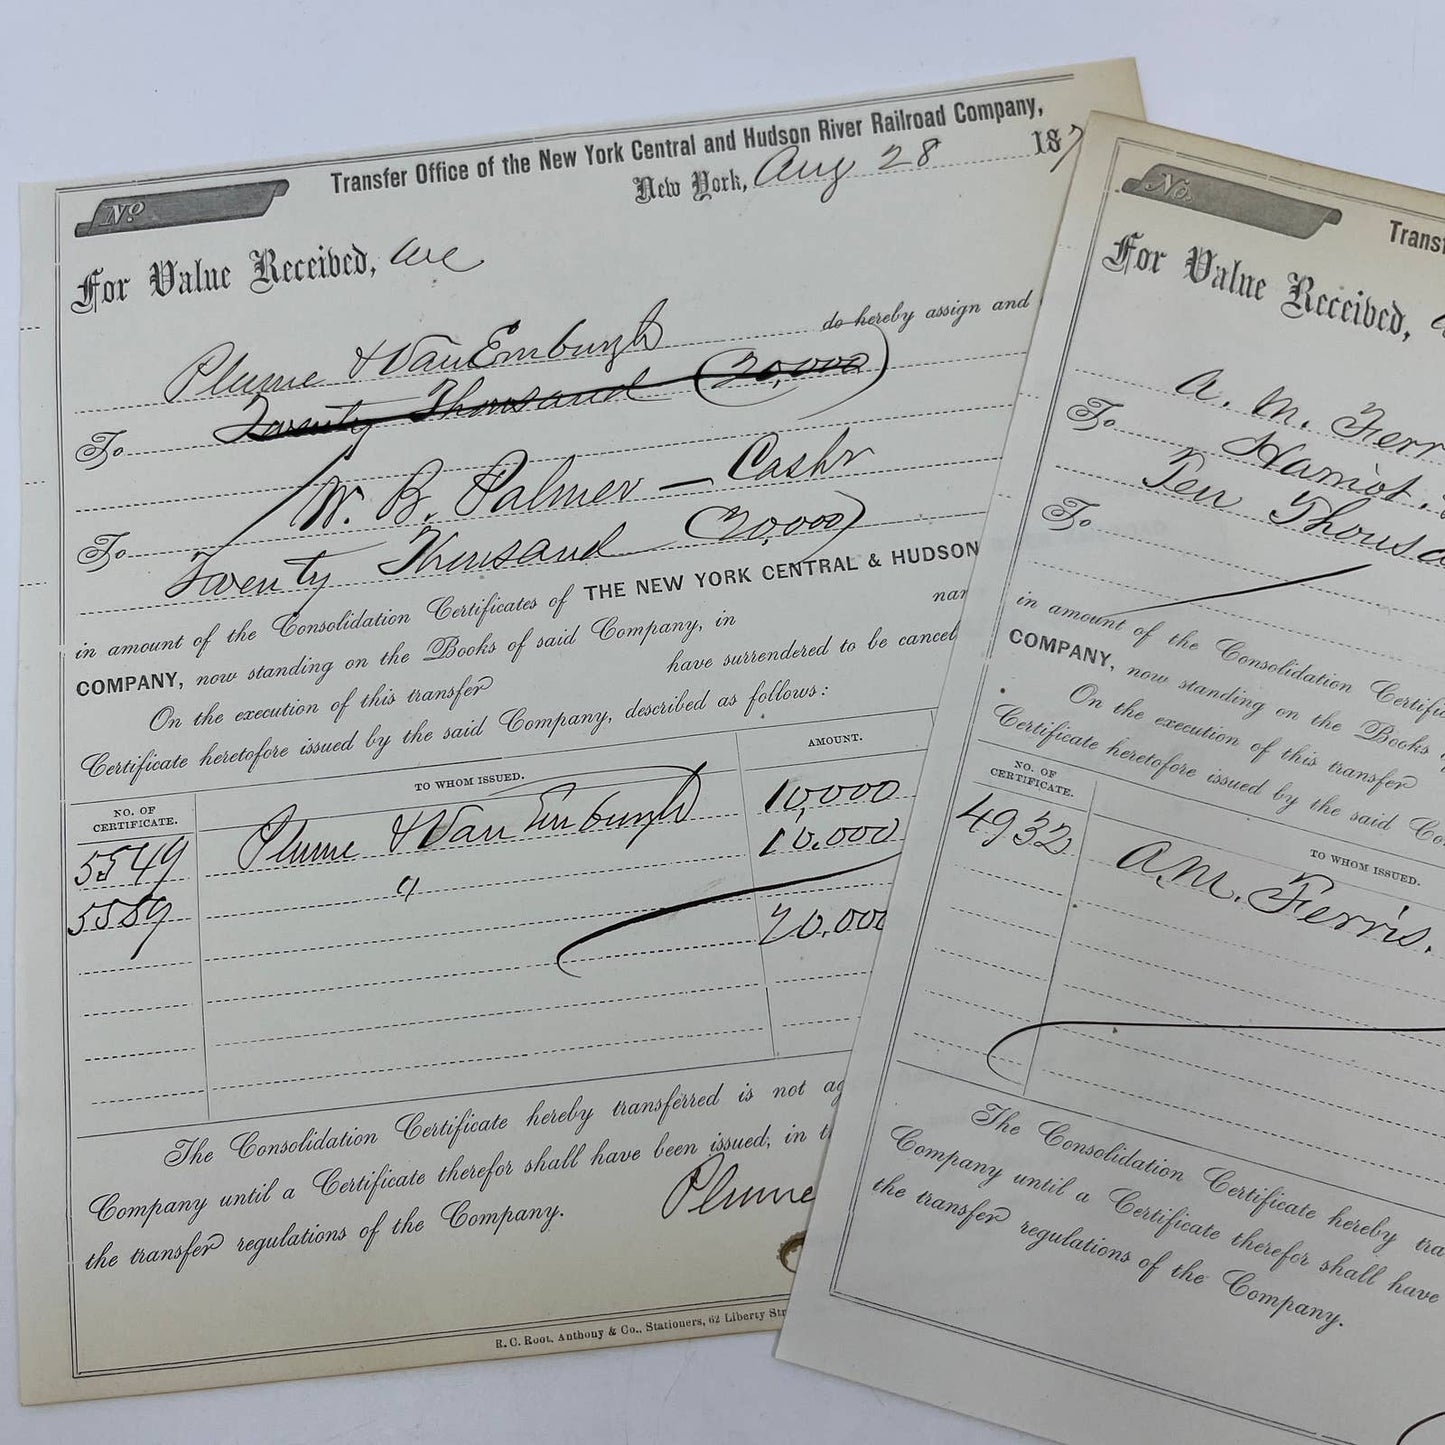 Transfer Office of the New York Central and Hudson River Railroad Company,
No
New York, Aug 28 187
For Value Received, we
Plume & Van Emburgh do hereby assign and
To Twenty Thousand (20,000)
W. B. Palmer – Cashr
To Twenty Thousand (20,000)
in amount of the Consolidation Certificates of THE NEW YORK CENTRAL & HUDSON
COMPANY, now standing on the Books of said Company, in
On the execution of this transfer have surrendered to be cancel
Certificate heretofore issued by the said Company, described as follows:
NO. OF CERTIFICATE. TO WHOM ISSUED. AMOUNT.
5549 Plume & Van Emburgh 10,000
5559 " 10.000
20.000
The Consolidation Certificate hereby transferred is not
Company until a Certificate therefor shall have been issued, in
the transfer regulations of the Company.
Plume
R. C. Root, Anthony & Co., Stationers, 62 Liberty
No.
Trans
For Value Received,
A. M. Ferr
To Harriot
Ten Thousa
To
in amount of the Consolidation
COMPANY, now standing on the Books
On the execution of this transfer
Certificate heretofore issued by the said
NO. OF CERTIFICATE. TO WHOM ISSUED.
4932 A. M. Ferris.
The Consolidation Certificate hereby tra
Company until a Certificate therefor shall have
the transfer regulations of the Company.